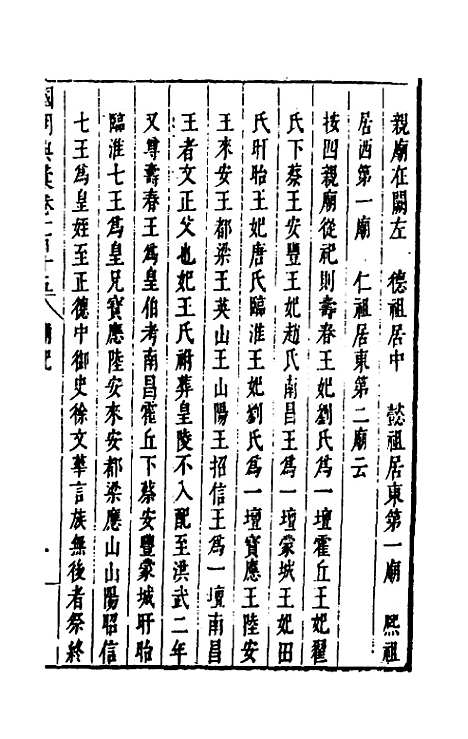 親廟在闕左　德祖居中　懿祖居東第一廟　熙祖
居西第一廟　仁祖居東第二廟云
按四親廟從祀則壽春王妃劉氏爲一壇霍丘王妃翟
氏下蔡王安豐王妃趙氏南昌王爲一壇蒙城王妃田
氏盱眙王妃唐氏臨淮王妃劉氏爲一壇寶應王陸安
王來安王都梁王英山王山陽王招信王爲一壇南昌
王者文正父也妃王氏祔葬皇陵不入配至洪武二年
又尊壽春王爲皇伯考南昌霍丘下蔡安豐蒙城盱眙
臨淮七王爲皇兄寶應陸安來安都梁應山山陽昭信
七王爲皇姪至正德中御史徐文華言族無後者祭終
國朝典彙卷一百十五